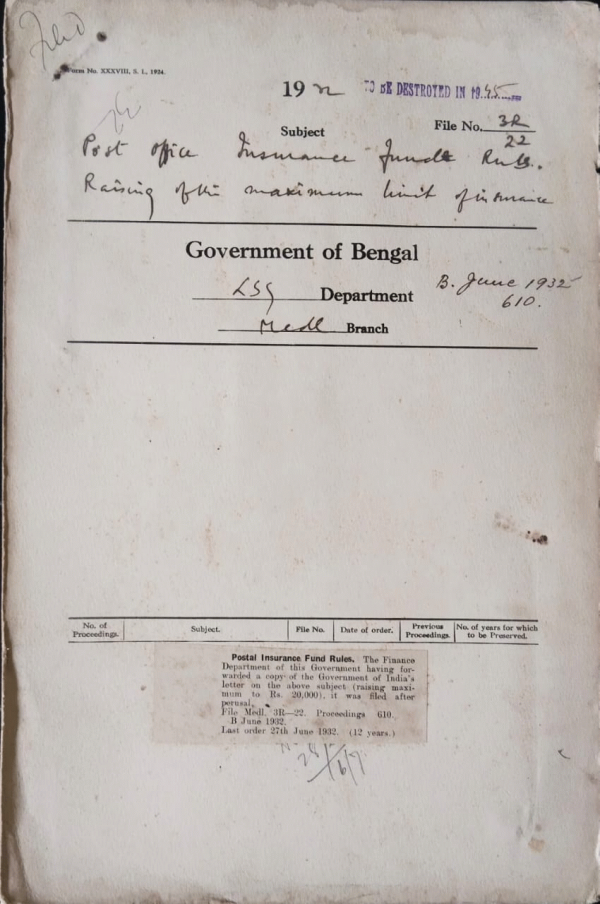 Filed
Form No. XXXVIII, S. I., 1924.
1932 TO BE DESTROYED IN 1945
Subject File No. 3R
22
Post office Insurance Fund Rules.
Raising of the maximum limit of insurance
Government of Bengal
LSG Department B. June 1932
610.
Medl Branch
No. of Proceedings. Subject. File No. Date of order. Previous Proceedings. No. of years for which to be Preserved.
Postal Insurance Fund Rules. The Finance
Department of this Government having for-
warded a copy of the Government of India's
letter on the above subject (raising maxi-
mum to Rs. 20,000), it was filed after
perusal.
File Medl. 3R—22. Proceedings 610.
B June 1932.
Last order 27th June 1932. (12 years.)